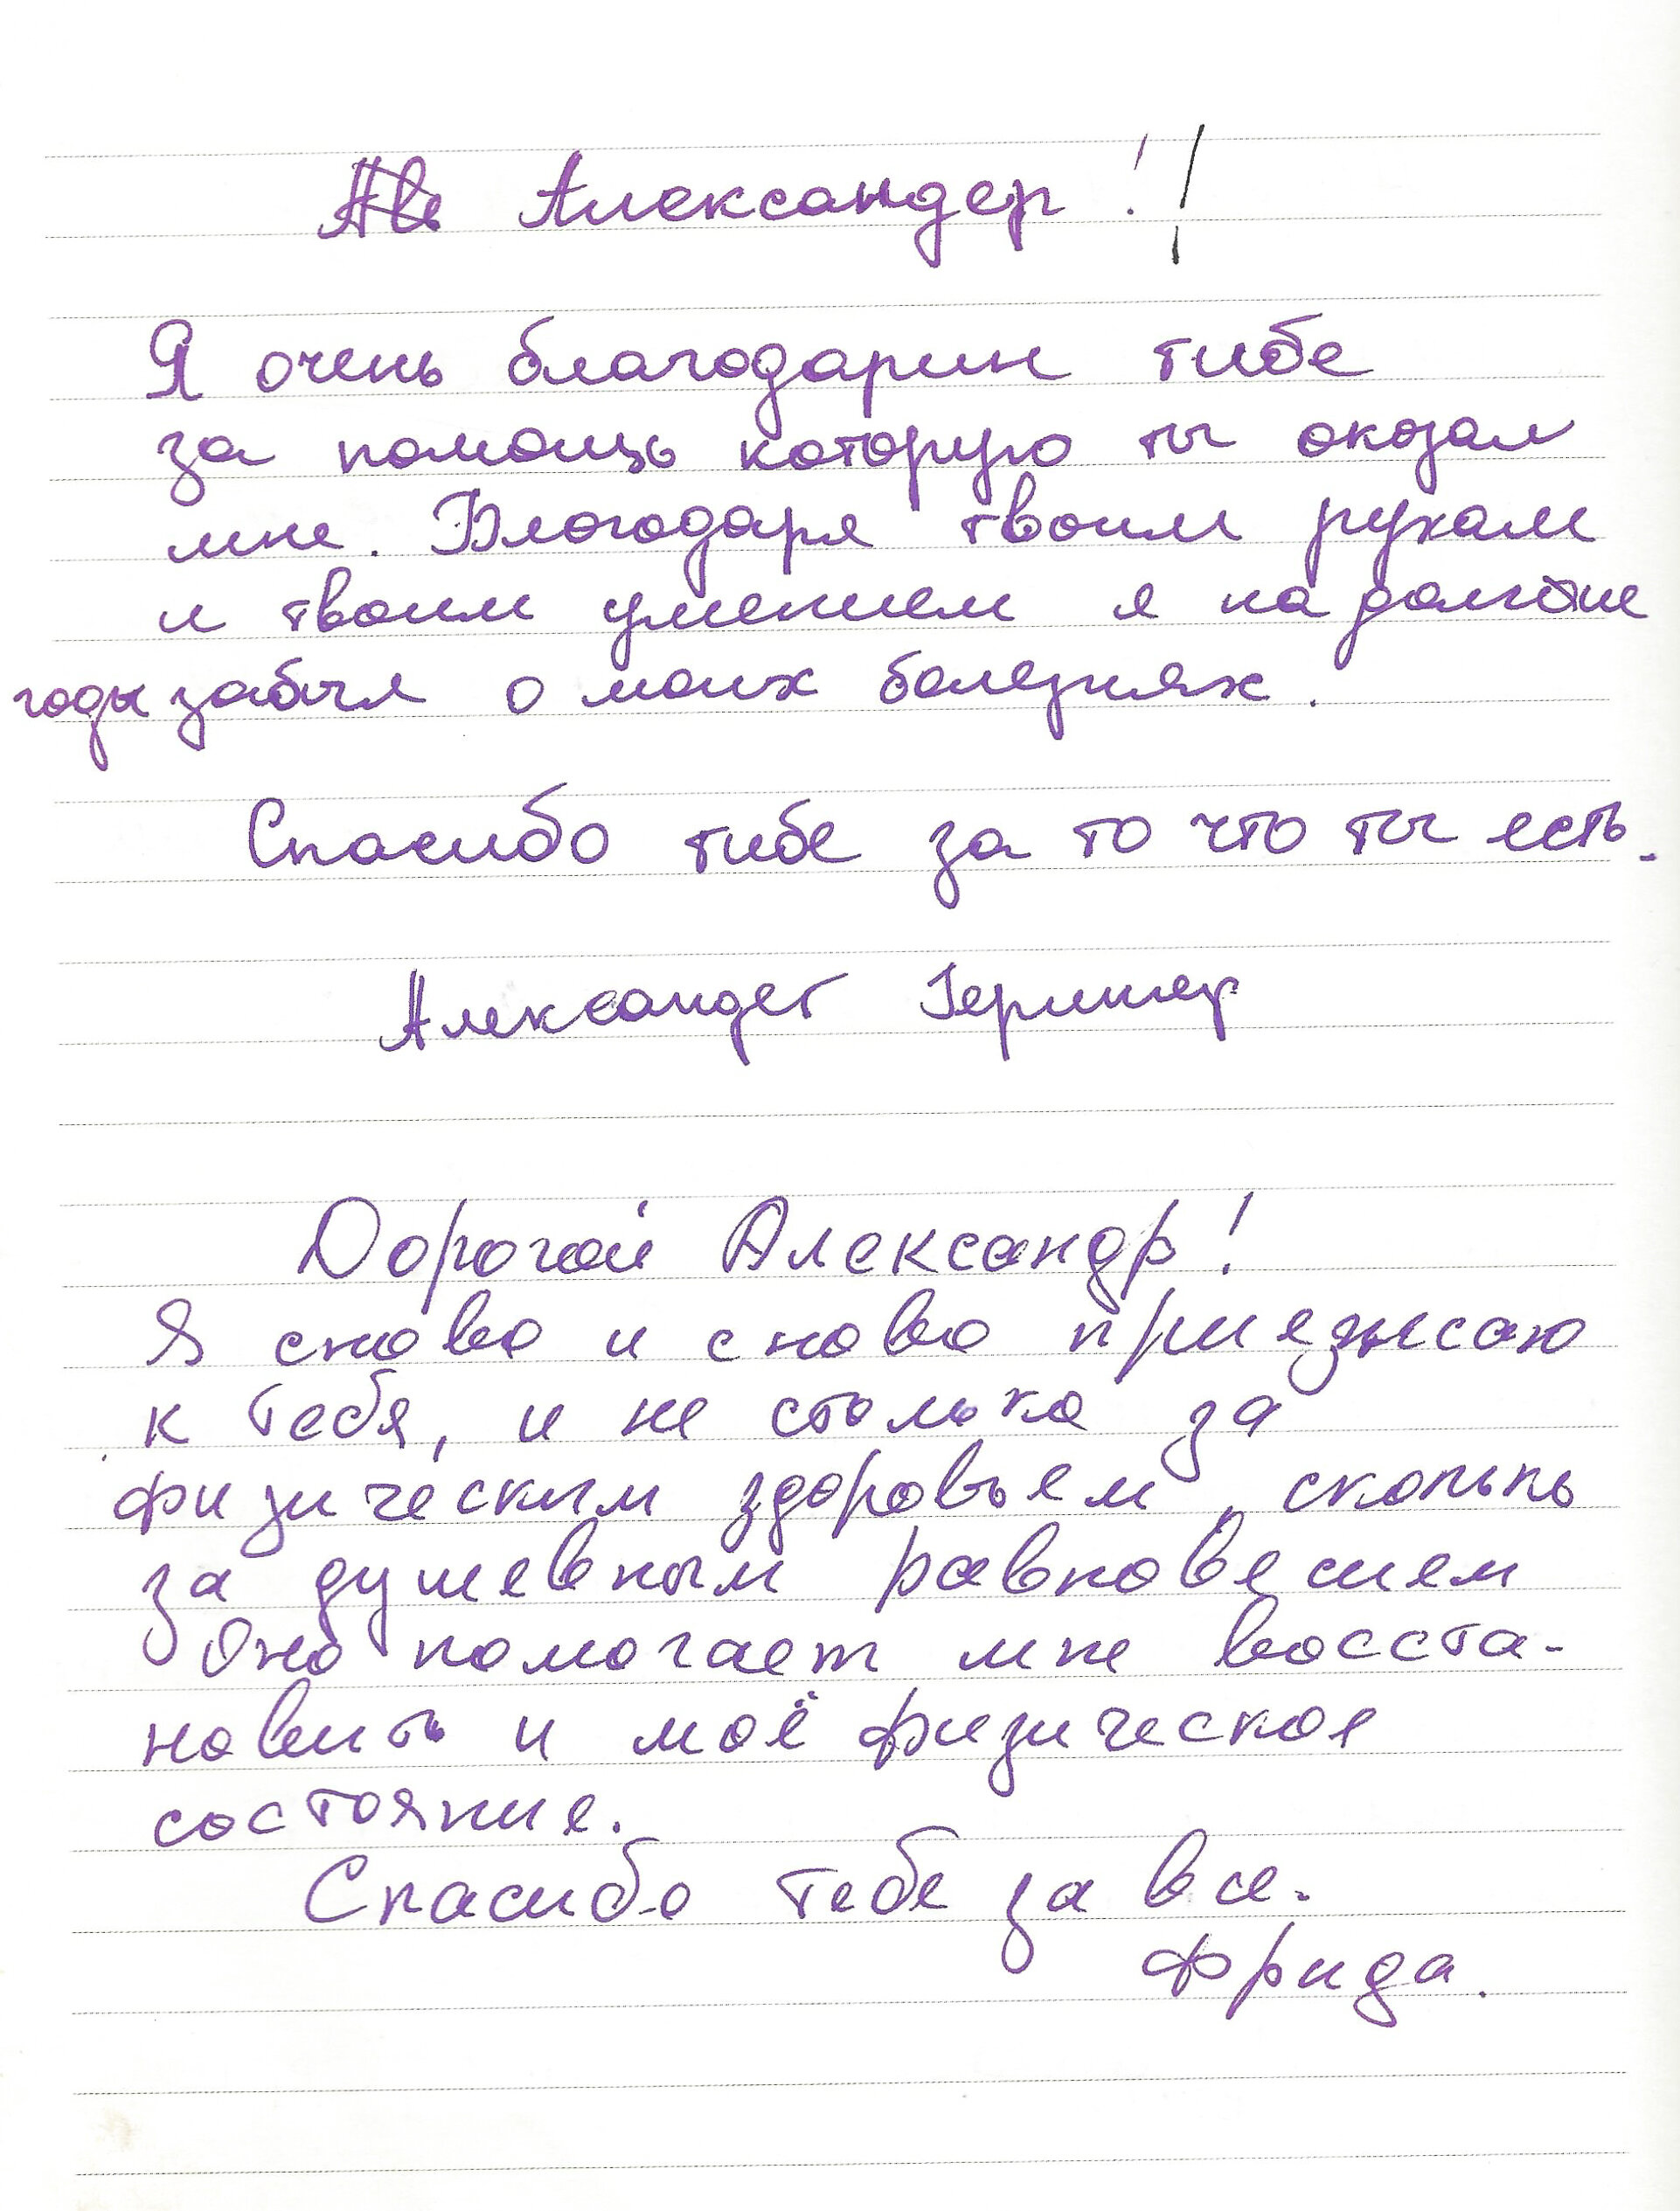 Александер!!
Я очень благодарин тибе
за помощь которую ты оказал
мне. Благодаря твоим рукам
и твоим умением я на долгие
годы забыл о моих болезнях.
Спасибо тибе за то что ты есть.
Александег
Дорогой Александр!
Я снова и снова приезжаю
к тебя, и не столько за
физическим здоровьем, сколько
за душевным равновесием
Оно помогает мне восста-
новить и моё физическое
состояние.
Спасибо тебе за все.
Фрида.